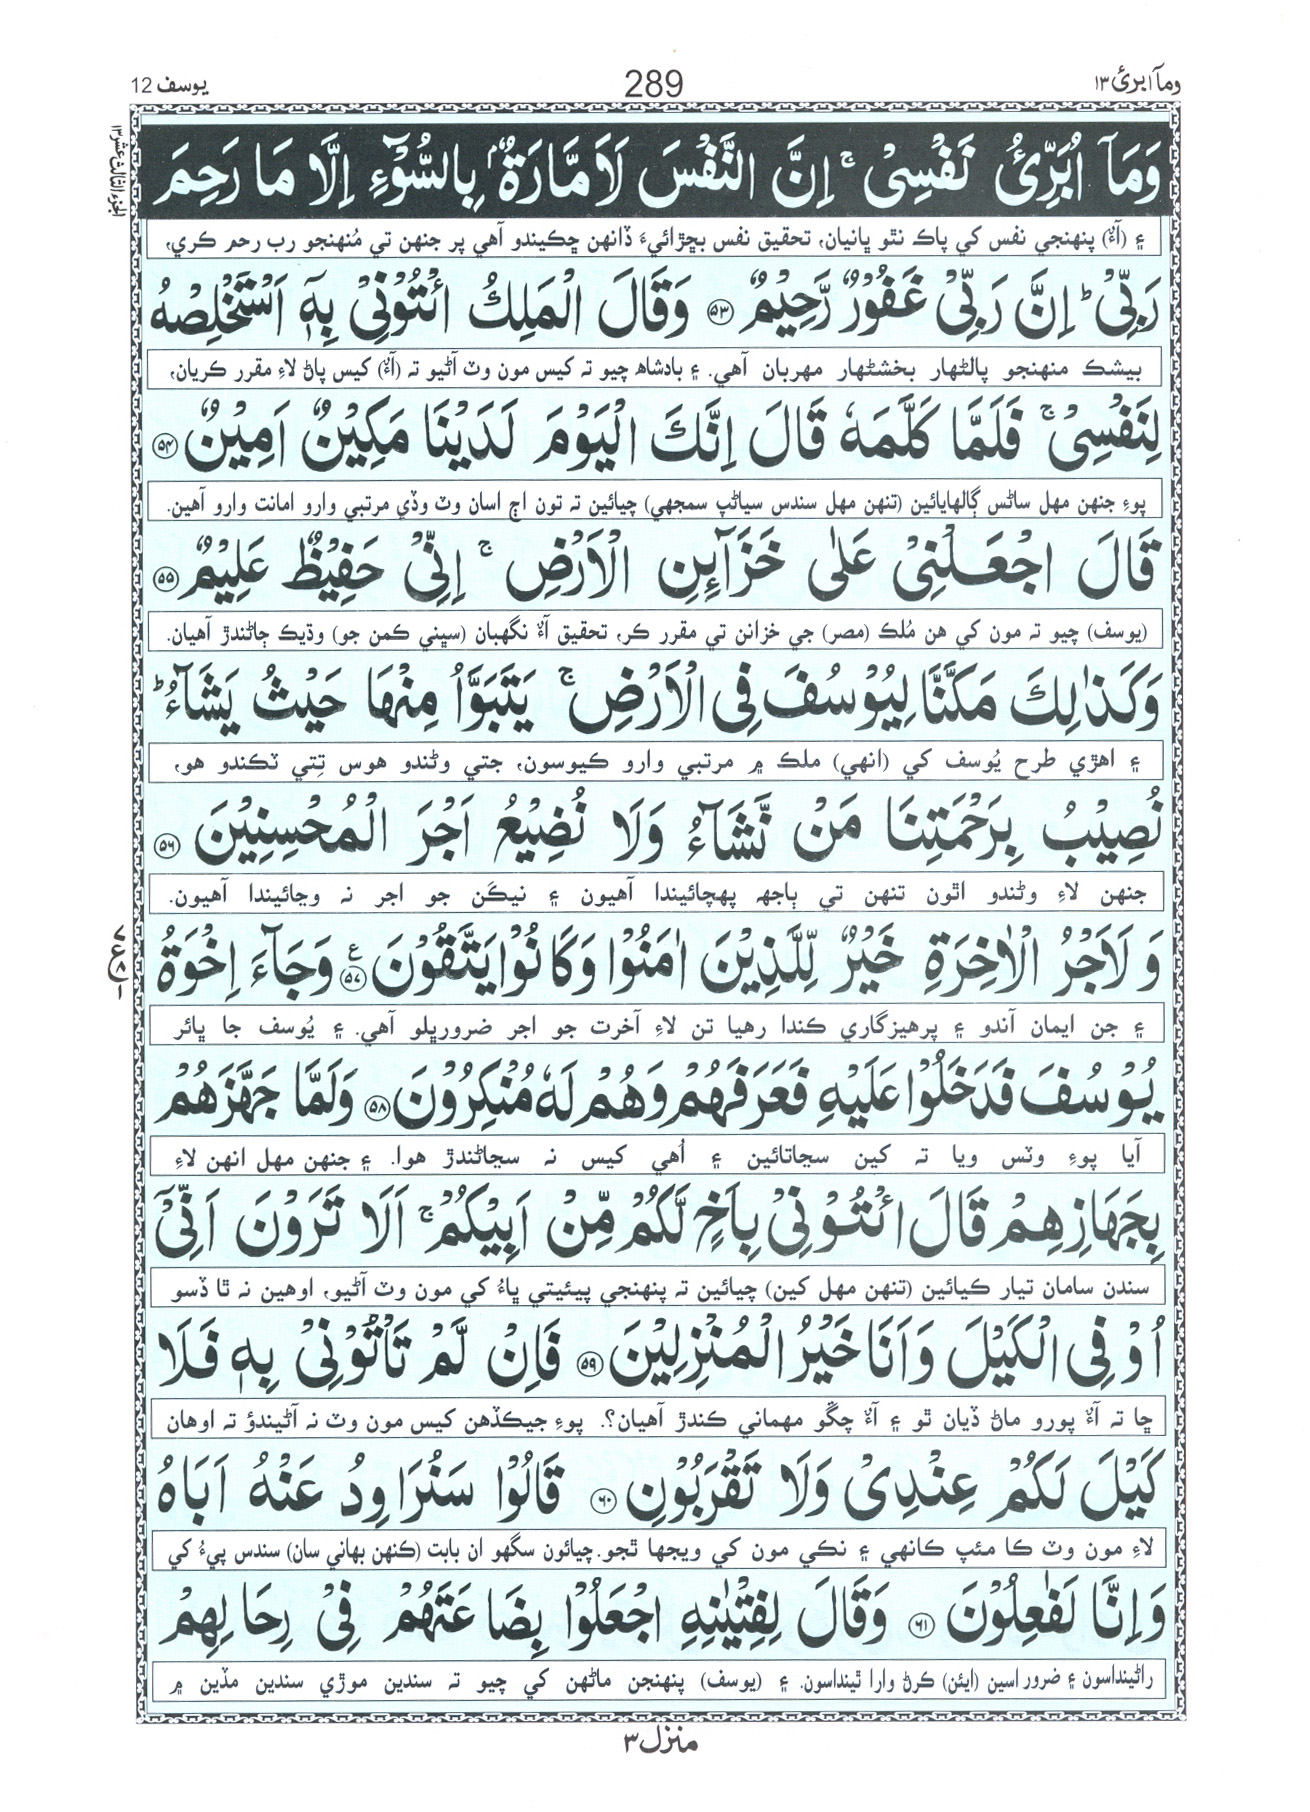 يوسف 12
289
ومآ ابرئ ١٣
الجزء الثالث عشر ١٣
وَمَآ اُبَرِّئُ نَفْسِىْ ۚ اِنَّ النَّفْسَ لَاَ مَّارَةٌۢ بِالسُّوْٓءِ اِلَّا مَا رَحِمَ
۽ (آءٌ) پنهنجي نفس کي پاڪ نٿو ڀانيان، تحقيق نفس بڇڙائيءَ ڏانهن ڇڪيندو آهي پر جنهن تي مُنهنجو رب رحم ڪري،
رَبِّىْ ؕ اِنَّ رَبِّىْ غَفُوْرٌ رَّحِيْمٌ ﴿٥٣﴾ وَقَالَ الْمَلِكُ ائْتُوْنِىْ بِهٖٓ اَسْتَخْلِصْهُ
بيشڪ منهنجو پالڻهار بخشڻهار مهربان آهي. ۽ بادشاه چيو ته کيس مون وٽ آڻيو ته (آءٌ) کيس پاڻ لاءِ مقرر ڪريان،
لِنَفْسِىْ ۚ فَلَمَّا كَلَّمَهٗ قَالَ اِنَّكَ الْيَوْمَ لَدَيْنَا مَكِيْنٌ اَمِيْنٌ ﴿٥٤﴾
پوءِ جنهن مهل ساڻس ڳالهايائين (تنهن مهل سندس سياڻپ سمجهي) چيائين ته تون اڄ اسان وٽ وڏي مرتبي وارو امانت وارو آهين.
قَالَ اجْعَلْنِىْ عَلٰى خَزَآىِٕنِ الْاَرْضِ ۚ اِنِّىْ حَفِيْظٌ عَلِيْمٌ ﴿٥٥﴾
(يوسف) چيو ته مون کي هن مُلڪ (مصر) جي خزانن تي مقرر ڪر، تحقيق آءٌ نگهبان (سڀني ڪمن جو) وڌيڪ ڄاڻندڙ آهيان.
وَكَذٰلِكَ مَكَّنَّا لِيُوْسُفَ فِى الْاَرْضِ ۚ يَتَبَوَّاُ مِنْهَا حَيْثُ يَشَآءُ ؕ
۽ اهڙي طرح يُوسف کي (انهي) ملڪ ۾ مرتبي وارو ڪيوسون، جتي وڻندو هوس تِتي ٽڪندو هو،
نُصِيْبُ بِرَحْمَتِنَا مَنْ نَّشَآءُ وَلَا نُضِيْعُ اَجْرَ الْمُحْسِنِيْنَ ﴿٥٦﴾
جنهن لاءِ وڻندو اٿون تنهن تي ٻاجهہ پهچائيندا آهيون ۽ نيڪَن جو اجر نہ وڃائيندا آهيون.
وَلَاَجْرُ الْاٰخِرَةِ خَيْرٌ لِّلَّذِيْنَ اٰمَنُوْا وَكَانُوْا يَتَّقُوْنَ ﴿٥٧﴾ ع وَجَآءَ اِخْوَةُ
۽ جن ايمان آندو ۽ پرهيزگاري ڪندا رهيا تن لاءِ آخرت جو اجر ضرور ڀلو آهي. ۽ يُوسف جا ڀائر
يُوْسُفَ فَدَخَلُوْا عَلَيْهِ فَعَرَفَهُمْ وَهُمْ لَهٗ مُنْكِرُوْنَ ﴿٥٨﴾ وَلَمَّا جَهَّزَهُمْ
آيا پوءِ وٽس ويا ته کين سڃاتائين ۽ اُهي کيس نہ سڃاڻندڙ هوا. ۽ جنهن مهل انهن لاءِ
بِجَهَازِهِمْ قَالَ ائْتُوْنِىْ بِاَخٍ لَّكُمْ مِّنْ اَبِيْكُمْ ۚ اَلَا تَرَوْنَ اَنِّىْٓ
سندن سامان تيار ڪيائين (تنهن مهل کين) چيائين تہ پنهنجي پيئيتي ڀاءُ کي مون وٽ آڻيو، اوهين نہ ٿا ڏسو
اُوْفِى الْكَيْلَ وَاَنَا خَيْرُ الْمُنْزِلِيْنَ ﴿٥٩﴾ فَاِنْ لَّمْ تَاْتُوْنِىْ بِهٖ فَلَا
ڇا ته آءٌ پورو ماڻ ڏيان ٿو ۽ آءٌ چڱو مهماني ڪندڙ آهيان؟. پوءِ جيڪڏهن کيس مون وٽ نہ آڻيندؤ تہ اوهان
كَيْلَ لَكُمْ عِنْدِىْ وَلَا تَقْرَبُوْنِ ﴿٦٠﴾ قَالُوْا سَنُرَاوِدُ عَنْهُ اَبَاهُ
لاءِ مون وٽ ڪا مئپ ڪانهي ۽ نڪي مون کي ويجها ٿجو. چيائون سگهو ان بابت (ڪنهن بهاني سان) سندس پيءُ کي
وَاِنَّا لَفٰعِلُوْنَ ﴿٦١﴾ وَقَالَ لِفِتْيٰنِهِ اجْعَلُوْا بِضَاعَتَهُمْ فِىْ رِحَالِهِمْ
راڻينداسون ۽ ضرور اسين (ايئن) ڪرڻ وارا ٿينداسون. ۽ (يوسف) پنهنجن ماڻهن کي چيو ته سندين موڙي سندين مڏين ۾
منزل ٣